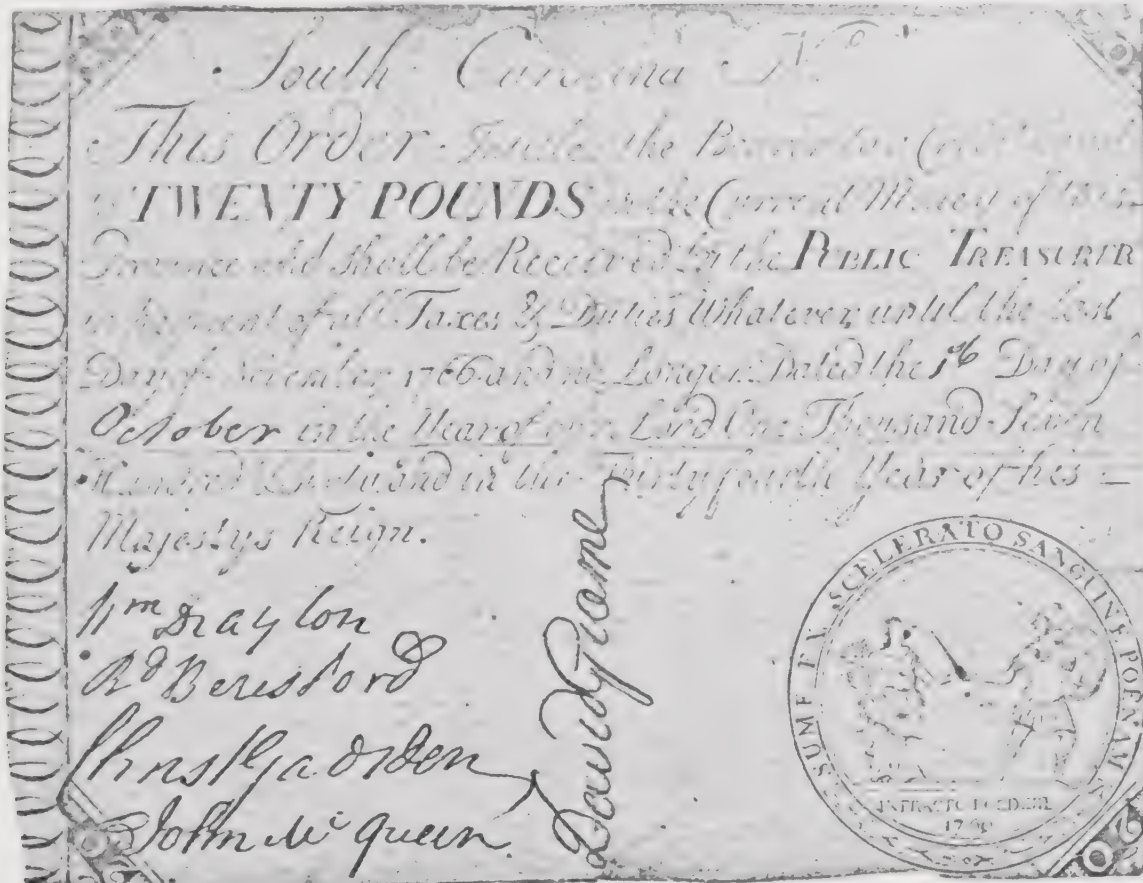 South Carolina No
This Order Intitles the Bearer to a Credit
TWENTY POUNDS in the Current Money of this
Province and shall be Received by the PUBLIC TREASURER
in Payment of all Taxes & Duties Whatever, until the last
Day of November 1766 and no Longer. Dated the 1st Day of
October in the Year of our Lord One Thousand Seven
Hundred & Sixty and in the Thirty fourth Year of his
Majestys Reign.
Wm Drayton
Rd Beresford
Chrisr Gadsden
John Mc Queen
David Græme
SUME EX SCELERATO SANGUINE POENAM
INFRACTO FOEDERE
1760